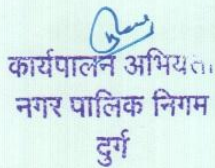 कार्यपालन अभियंता
नगर पालिक निगम
दुर्ग